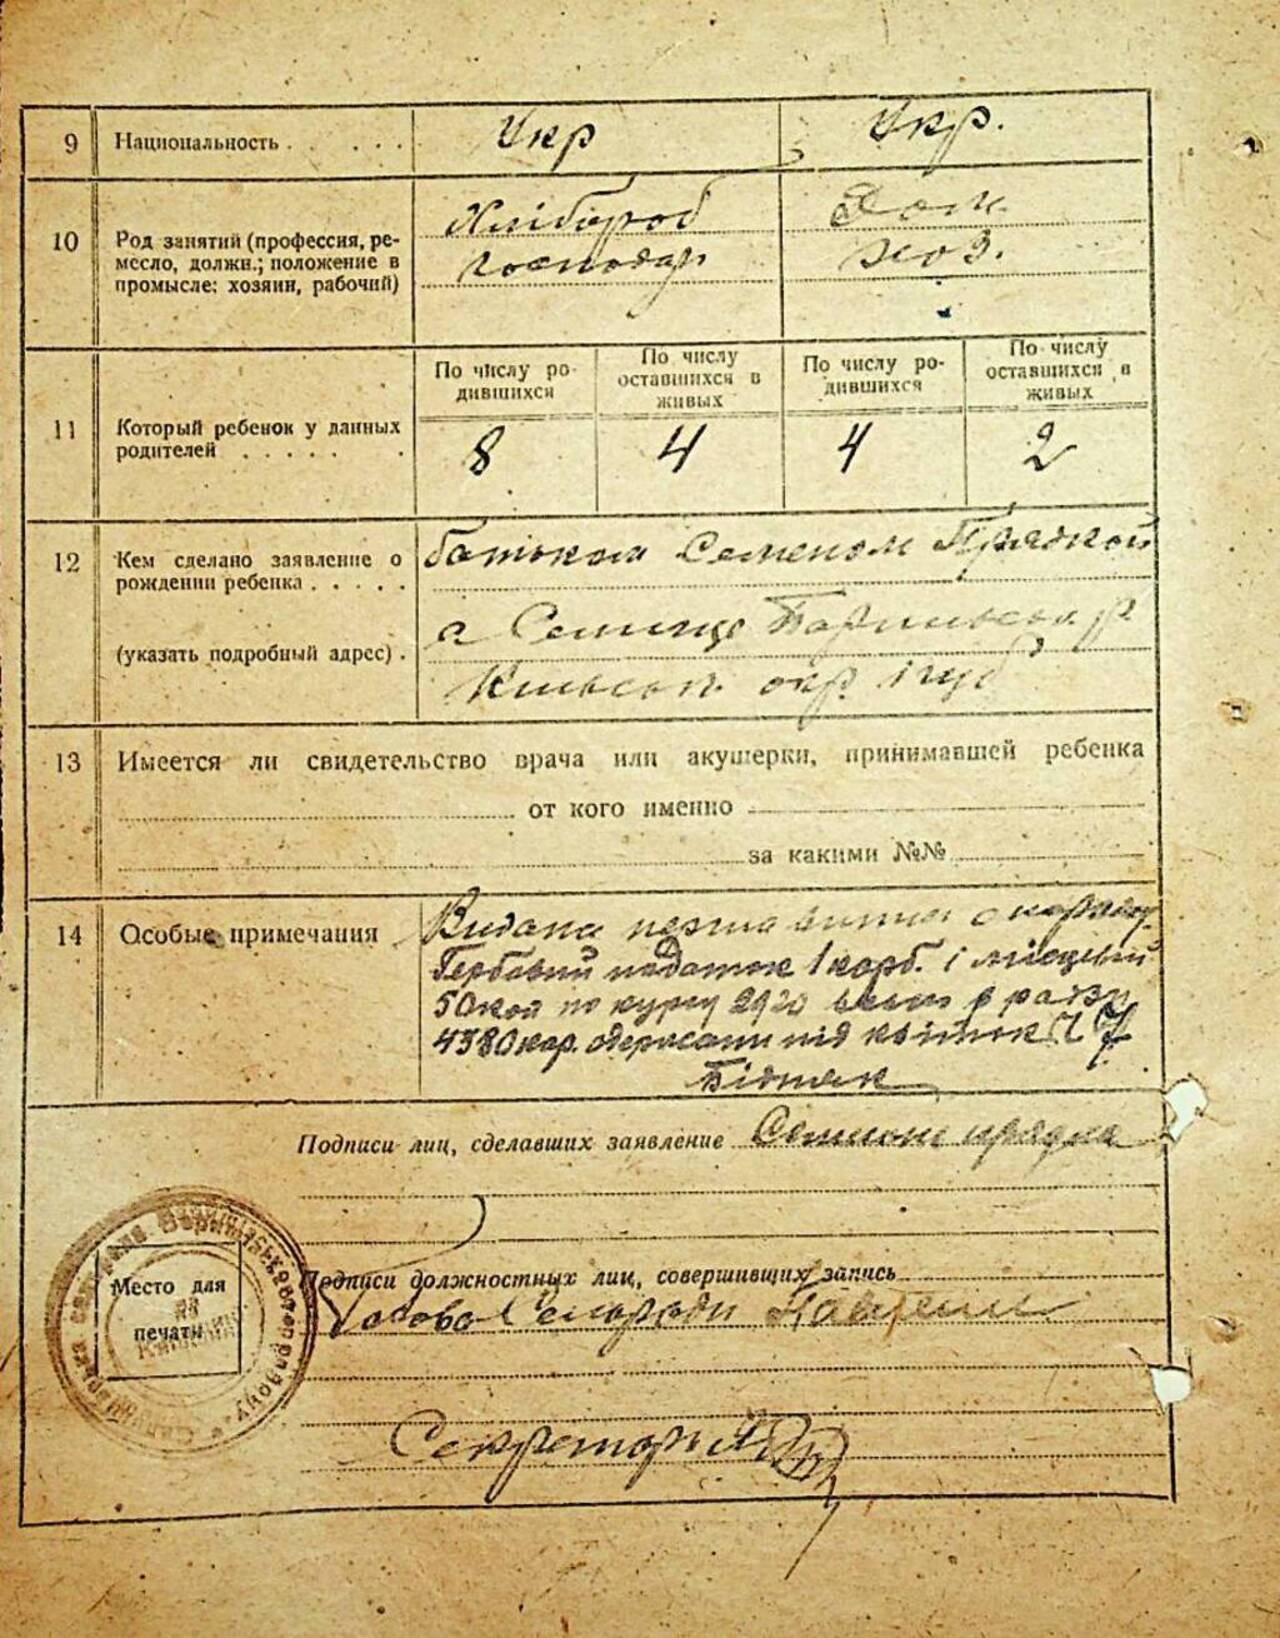 9 Национальность . . . . . . Укр Укр.
10 Род занятий (профессия, ре-
месло, должн.; положение в
промысле: хозяин, рабочий)
Хлібороб
господар
Дом.
хоз.
11 Который ребенок у данных
родителей . . . . . .
По числу ро-
дившихся
По числу
оставшихся в
живых
По числу ро-
дившихся
По числу
оставшихся в
живых
8 4 4 2
12 Кем сделано заявление о
рождении ребенка . . . . .
(указать подробный адрес) .
батьком Семеном Прядкой
окр.
13 Имеется ли свидетельство врача или акушерки, принимавшей ребенка
от кого именно
за какими №№
14 Особые примечания
Видана
Гербовий податок 1 карб. і місцевий
50 коп по курсу 2920 в разі
4380 кар. одержано під квіток Ч 7
Бідняк
Подписи лиц, сделавших заявление прядка
Место для
печати
Подписи должностных лиц, совершивших запись
Голова Сельради
Секретарь